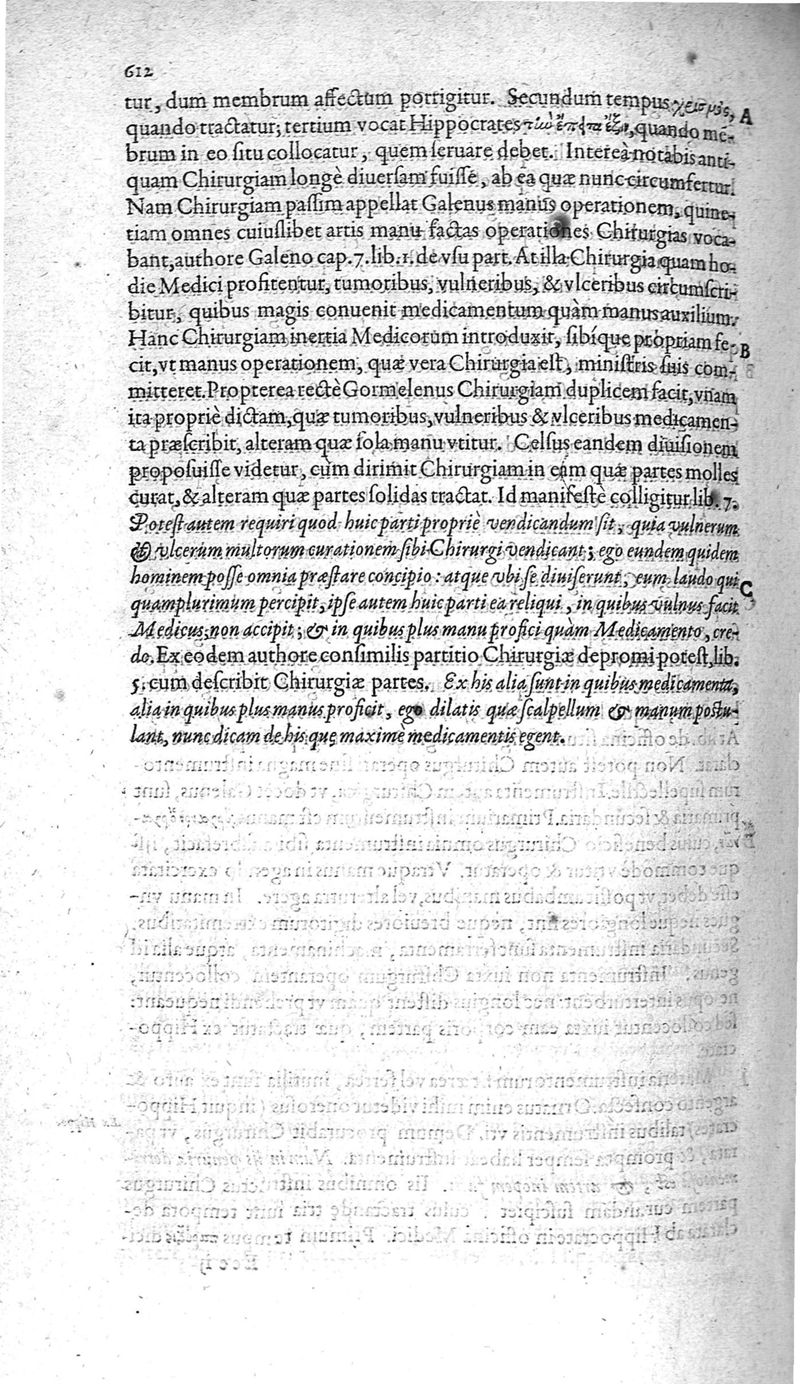 612
tur, dum membrum affectum porrigitur. Secundum tempus χειρισμὸς, A
quando tractatur; tertium vocat Hippocrates quando mē-
brum in eo situ collocatur, quem seruare debet. Intereà notabis anti-
quam Chirurgiam longè diuersam fuisse, ab ea quæ nunc circumfertur.
Nam Chirurgiam passim appellat Galenus manus operationem, quine-
tiam omnes cuiuslibet artis manu factas operationes Chirurgias voca-
bant, authore Galeno cap. 7. lib. 1. de vsu part. At illa Chirurgia quam ho-
die Medici profitentur, tumoribus, vulneribus, & vlceribus circumscri-
bitur, quibus magis conuenit medicamentum quàm manus auxilium.
Hanc Chirurgiam inertia Medicorum introduxit, sibíque propriam fe- B
cit, vt manus operationem, quæ vera Chirurgia est, ministris suis com-
mitteret. Propterea rectè Gormelenus Chirurgiam duplicem facit, vnam
ita propriè dictam, quæ tumoribus, vulneribus & vlceribus medicamen-
ta præscribit, alteram quæ sola manu vtitur. Celsus eandem diuisionem
proposuisse videtur, cùm dirimit Chirurgiam in eam quæ partes molles
curat, & alteram quæ partes solidas tractat. Id manifestè colligitur lib. 7.
Potest autem requiri quod huic parti propriè vendicandum sit, quia vulnerum
& vlcerum multorum curationem sibi Chirurgi vendicant; ego eundem quidem
hominem posse omnia præstare concipio: atque vbi se diuiserunt, eum laudo qui C
quamplurimum percipit, ipse autem huic parti ea reliqui, in quibus vulnus facit
Medicus, non accipit; & in quibus plus manu profici quàm Medicamento, cre-
do. Ex eodem authore consimilis partitio Chirurgiæ depromi potest, lib.
5. cum describit Chirurgiæ partes. Ex his alia sunt in quibus medicamenta,
alia in quibus plus manus proficit, ego dilatis quæ scalpellum & manum postu-
lant, nunc dicam de his quę maximè medicamentis egent.